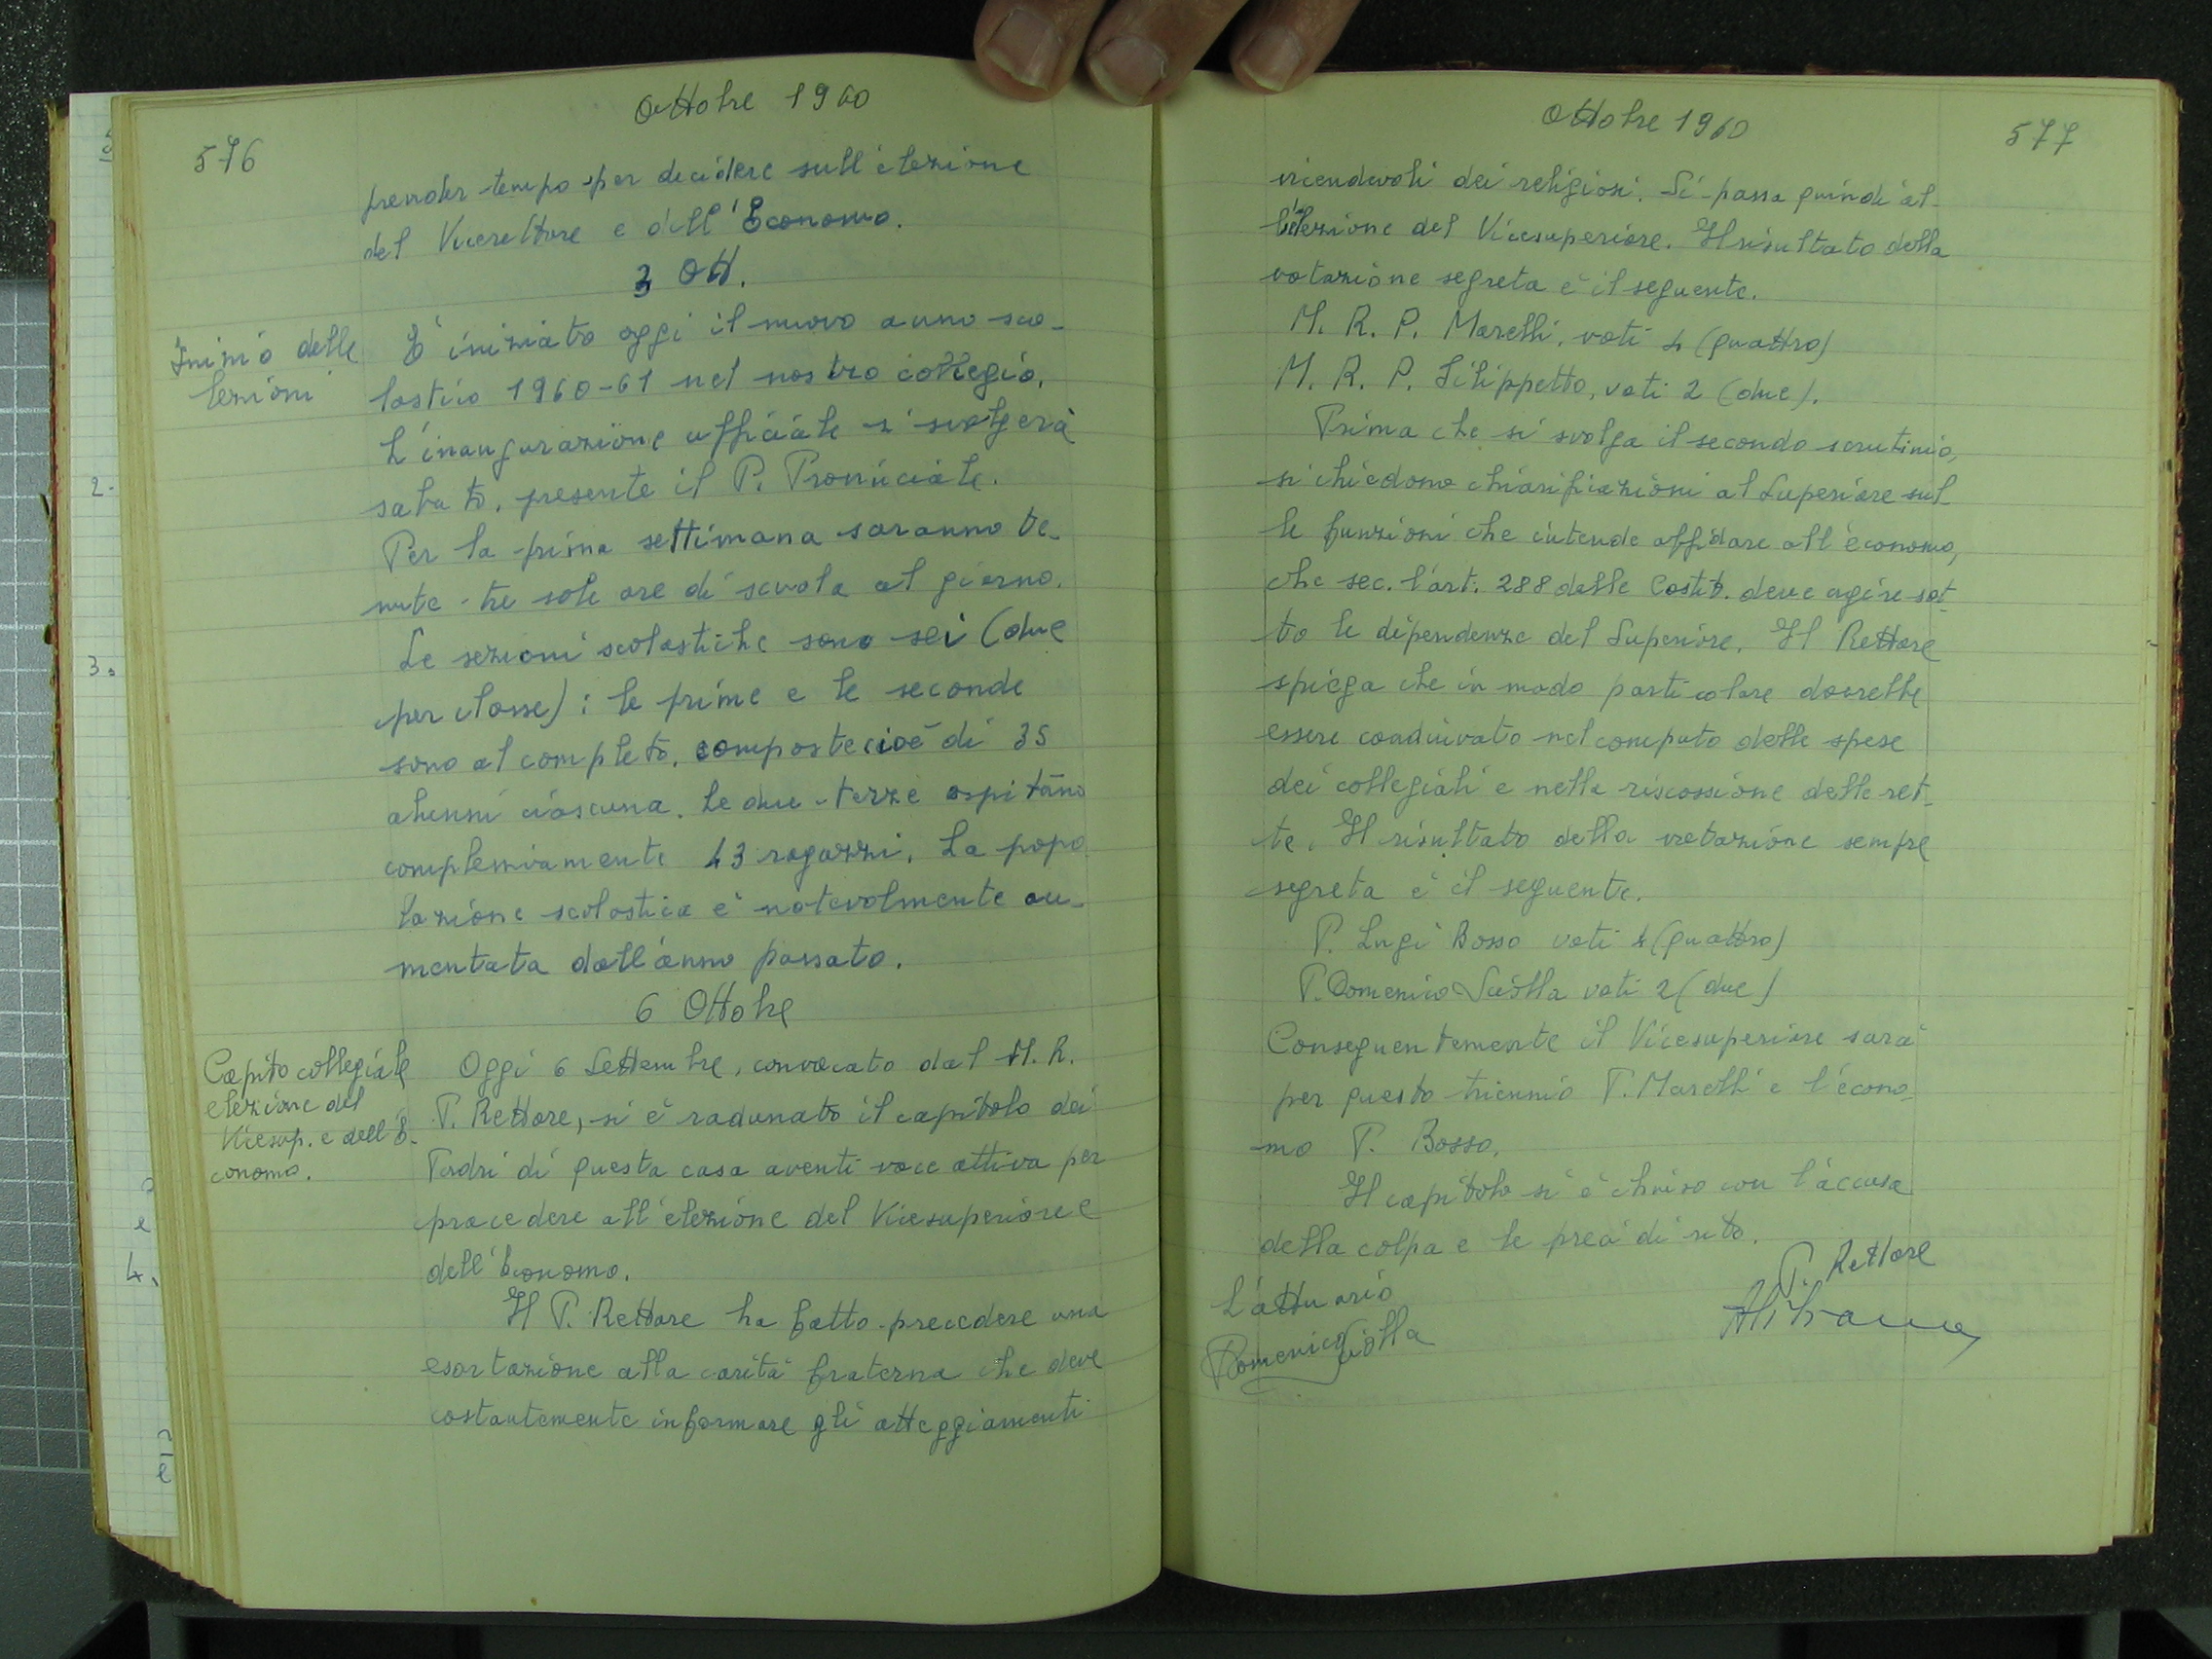 Ottobre 1960
576
prender tempo per decidere sull'elezione
del Vicerettore e dell'Economo.
3 Ott.
Inizio delle
lezioni
E' iniziato oggi il nuovo anno sco-
lastico 1960-61 nel nostro collegio.
L'inaugurazione ufficiale si svolgerà
sabato, presente il P. Provinciale.
Per la prima settimana saranno te-
nute tre sole ore di scuola al giorno.
Le sezioni scolastiche sono sei (due
per classe): le prime e le seconde
sono al completo, composte cioè di 35
alunni ciascuna. Le due terze ospitano
complessivamente 43 ragazzi. La popo
lazione scolastica è notevolmente au-
mentata dall'anno passato.
6 Ottobre
Capito collegiale
elezione del
Vicesup. e dell'E-
conomo.
Oggi 6 Settembre, convocato dal M. R.
P. Rettore, si è radunato il capitolo dei
Padri di questa casa aventi voce attiva per
procedere all'elezione del Vicesuperiore e
dell'Economo.
Il P. Rettore ha fatto precedere una
esortazione alla carità fraterna che deve
costantemente informare gli atteggiamenti
Ottobre 1960
577
vicendevoli dei religiosi. Si passa quindi al-
l'elezione del Vicesuperiore. Il risultato della
votazione segreta è il seguente.
M. R. P. Marelli, voti 4 (quattro)
M. R. P. Filippetto, voti 2 (due).
Prima che si svolga il secondo scrutinio,
si chiedono chiarificazioni al Superiore sul-
le funzioni che intende affidare all'economo,
che sec. l'art. 288 delle Costit. deve agire sot-
to le dipendenze del Superiore. Il Rettore
spiega che in modo particolare dovrebbe
essere coadiuvato nel computo delle spese
dei collegiali e nella riscossione delle ret-
te. Il risultato della votazione sempre
segreta è il seguente.
P. Luigi Bosso voti 4 (quattro)
P. Domenico Sciolla voti 2 (due)
Conseguentemente il Vicesuperiore sarà
per questo triennio P. Marelli e l'econo-
mo P. Bosso.
Il capitolo si è chiuso con l'accusa
della colpa e le preci di rito.
L'attuario
P. Rettore
Domenico Sciolla